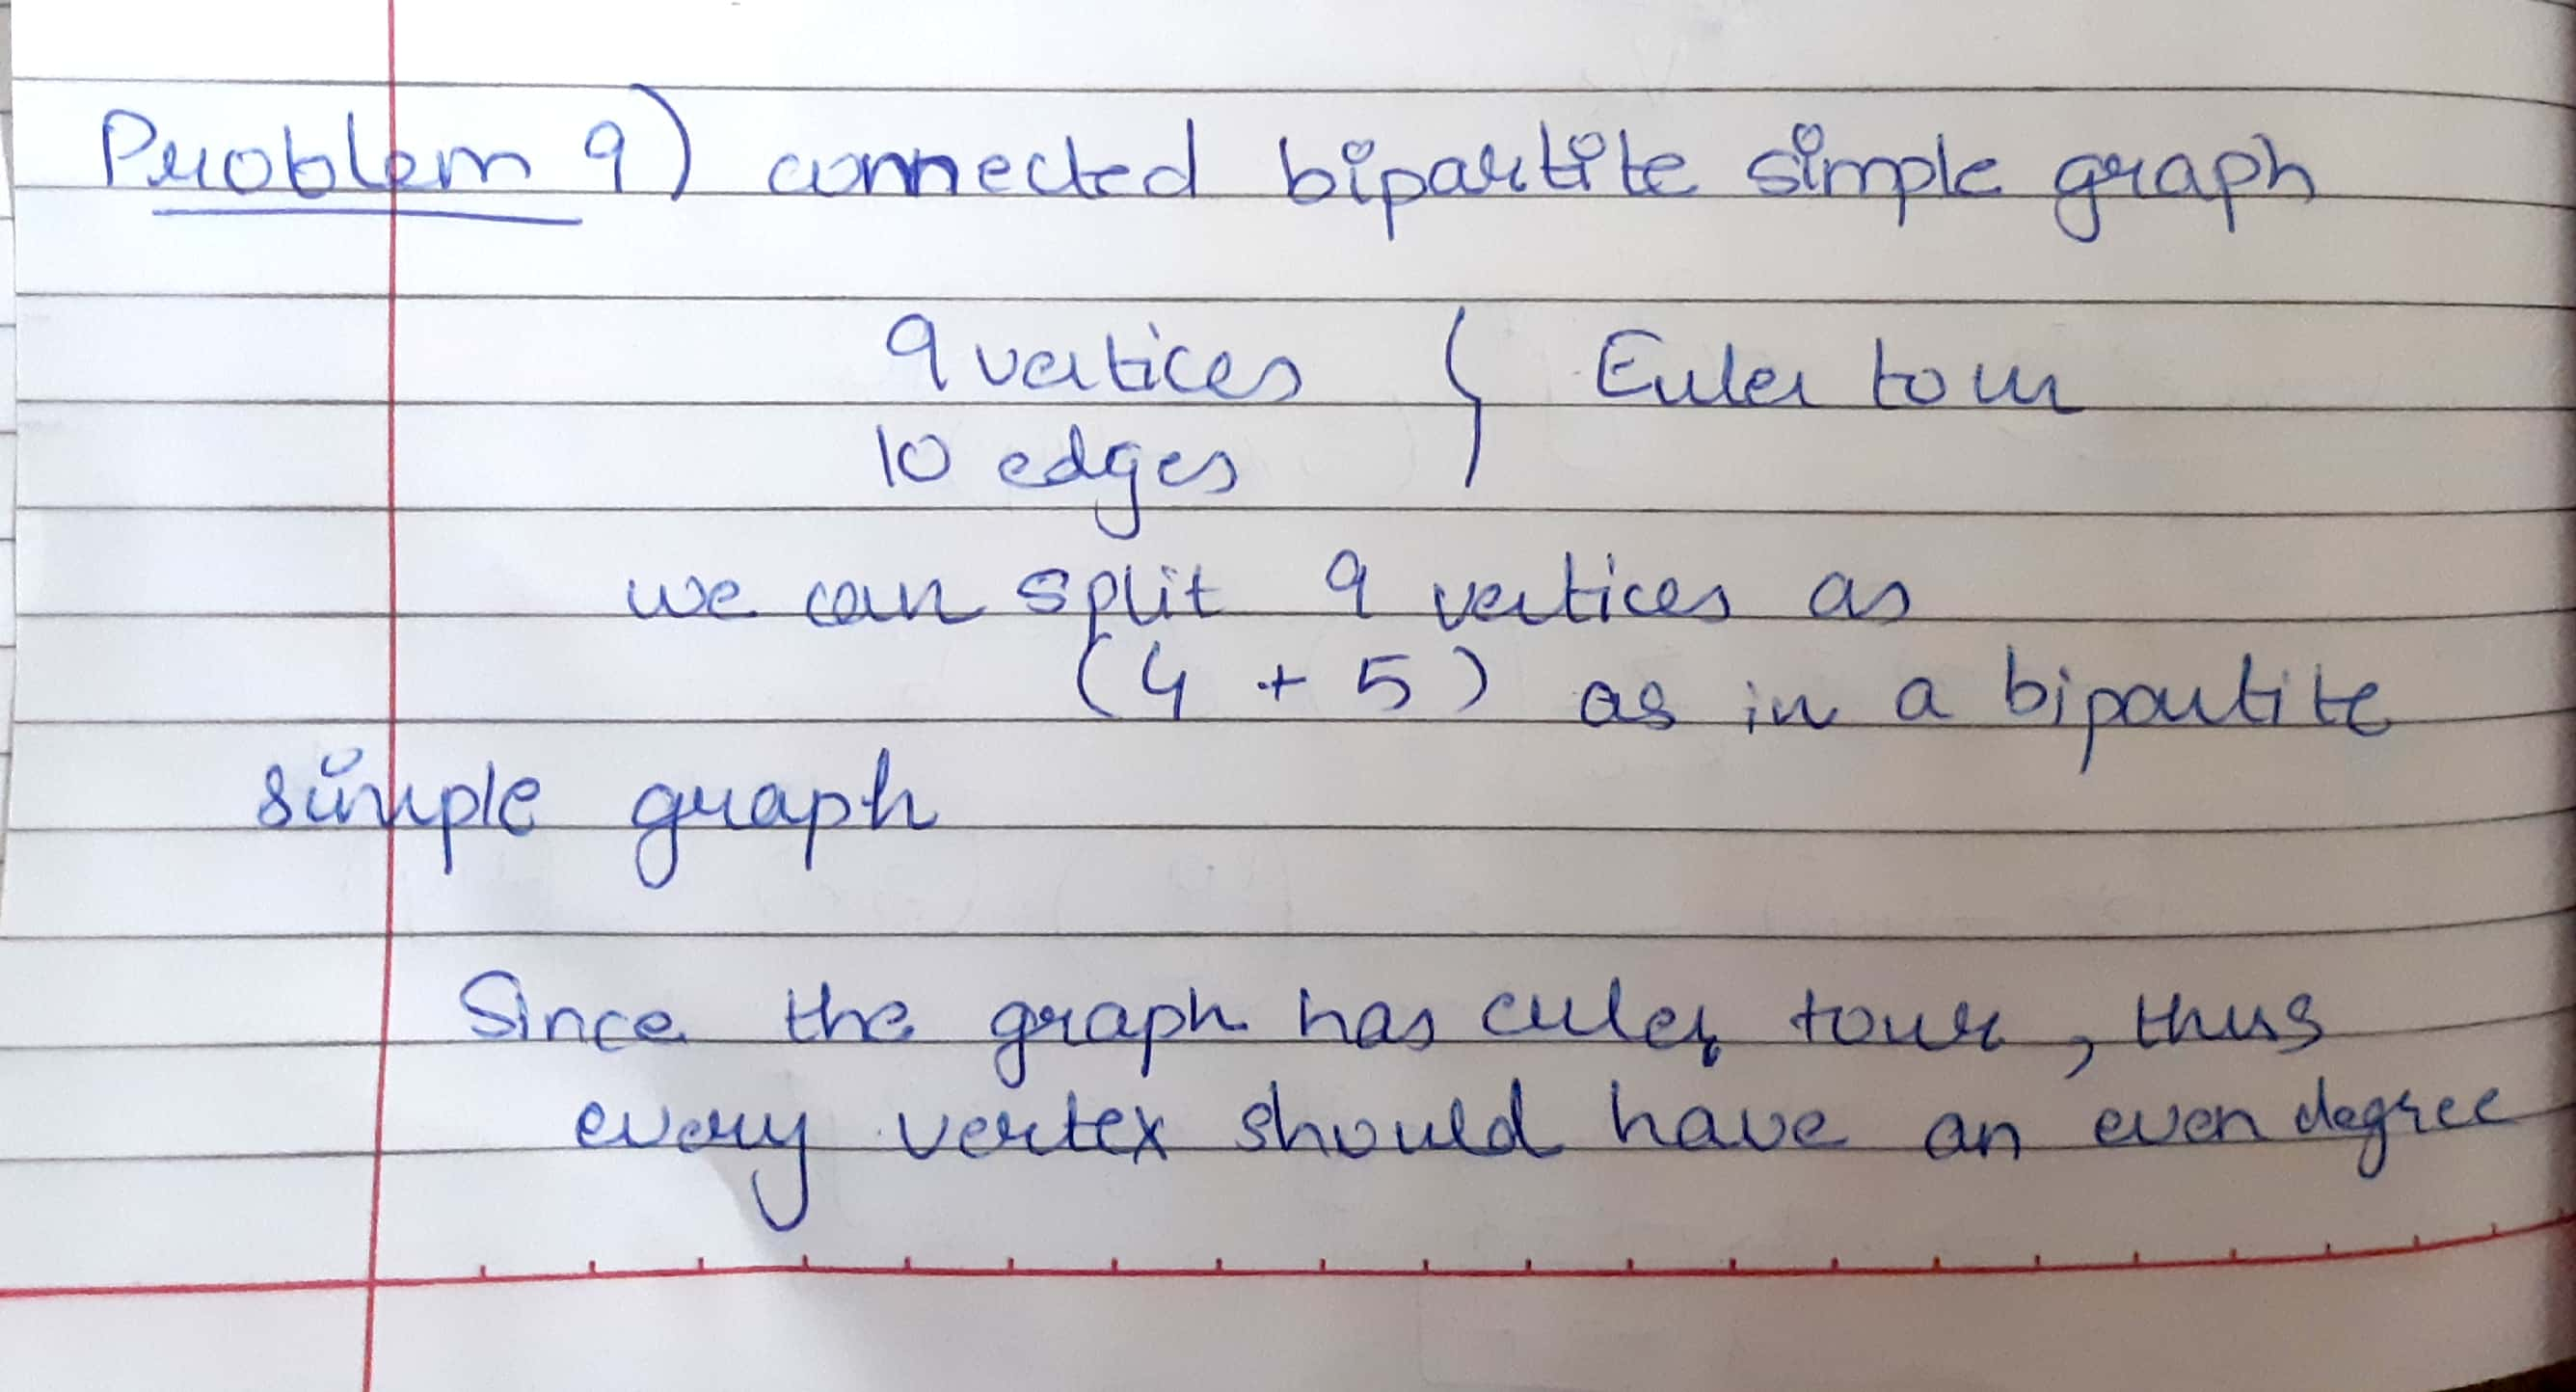 Problem 9) connected bipartite simple graph
9 vertices } Euler tour
10 edges
we can split 9 vertices as
(4 + 5) as in a bipartite
simple graph
Since the graph has euler tour, thus
every vertex should have an even degree